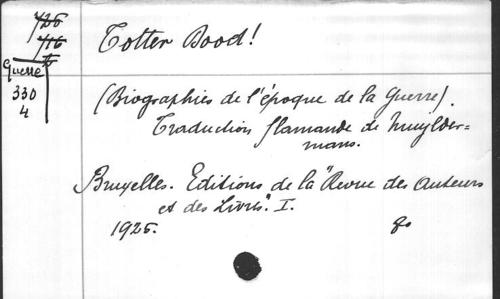 Totter Dood!
Guerre
330
4
(Biographies de l'époque de la Guerre).
Traduction flamande de Muylder=
mans.
Bruxelles. Editions de la "Revue des Auteurs
et des Livres". I.
1925. 8o